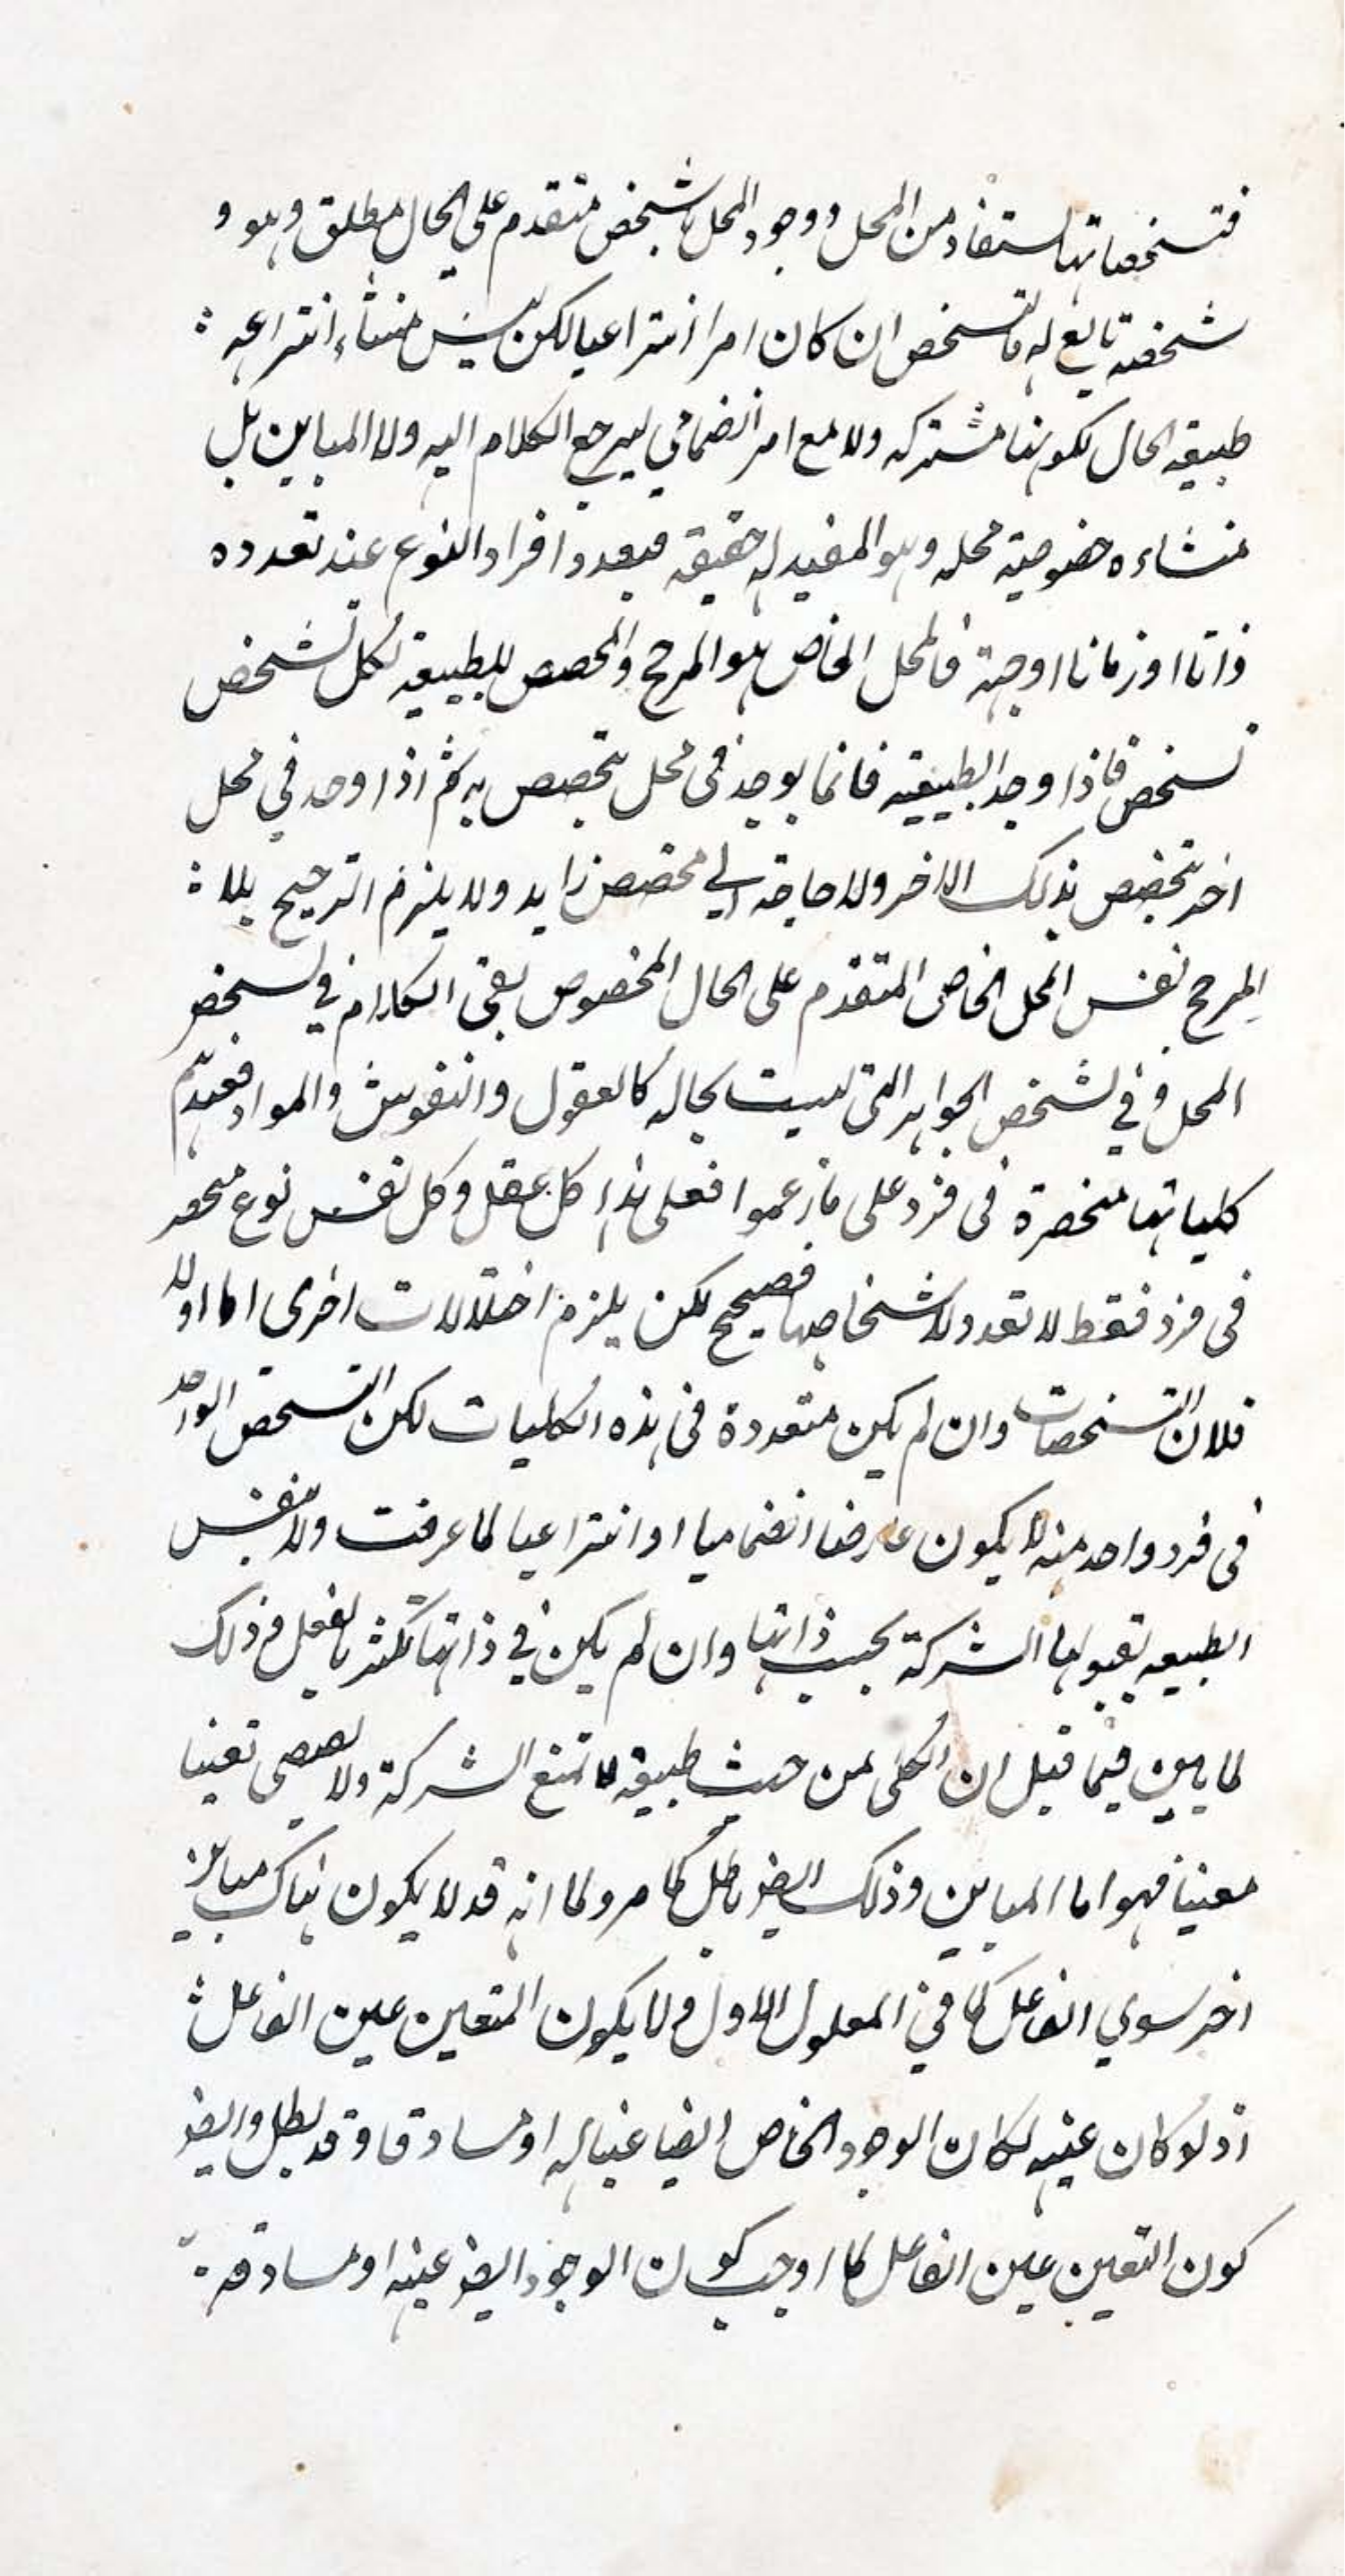 فتشخصاتها تستفاد من المحل ووجود المحل بتشخص متقدم على الحال مطلق وهو و
شخصه تابع له فالتشخص ان كان امرا انتزاعيا لكن ليس منشأء انتزاعه
طبيعه الحال لكونها مشتركه ولا مع امر انضمامي ليرجع الكلام اليه ولا المباين بل
منشاءه خصوصية محله وهو المفيد له حقيقه فبعدد افراد النوع عند تعدده
ذاتا او زمانا او جهة فالمحل الخاص هو المرجح والمخصص للطبيعة لكل تشخص
تشخص فاذا وجد الطبيعيه فانما يوجد في محل يتخصص به ثم اذا وجد في محل
اخر يتخصص بذلك الاخر ولا حاجة الي مخصص زايد ولا يلزم الترجيح بلا
المرجح نفس المحل الخاص المتقدم على الحال المخصوص بقي الكلام في تشخص
المحل وفي تشخص الجواهر التى ليست بحاله كالعقول والنفوس والمواد فعندهم
كلياتها منحصرة فى فرد على ما زعموا فعلى هذا كل عقل وكل نفس نوع منحصر
فى فرد فقط لا تعدد لاشخاصها فصحيح لكن يلزم اختلالات اخرى اما اولا
فلان التشخصات وان لم يكن متعددة فى هذه الكليات لكن التشخص الواحد
فى فرد واحد منه لا يكون عارضا انضماميا او انتزاعيا لما عرفت ولا نفس
الطبيعه لقبولها الشركة بحسب ذاتها وان لم يكن في ذاتها تكثر بالفعل وذلك
لما بين فيما قيل ان الكلى من حيث طبيعة لا تمنع الشركة ولا يقتضى تعينا
معينا فهو اما المباين وذلك ايضو باطل كما مر ولما انه قد لا يكون هناك مباين
اخر سوي الفاعل كما في المعلول الاول ولا يكون المتعين عين الفاعل
اذ لو كان عينه لكان الوجود الخاص ايضا عينا له او مساوقا وقد بطل وايضو
كون التعين عين الفاعل كما اوجب كون الوجود ايضو عينه او مساوقه